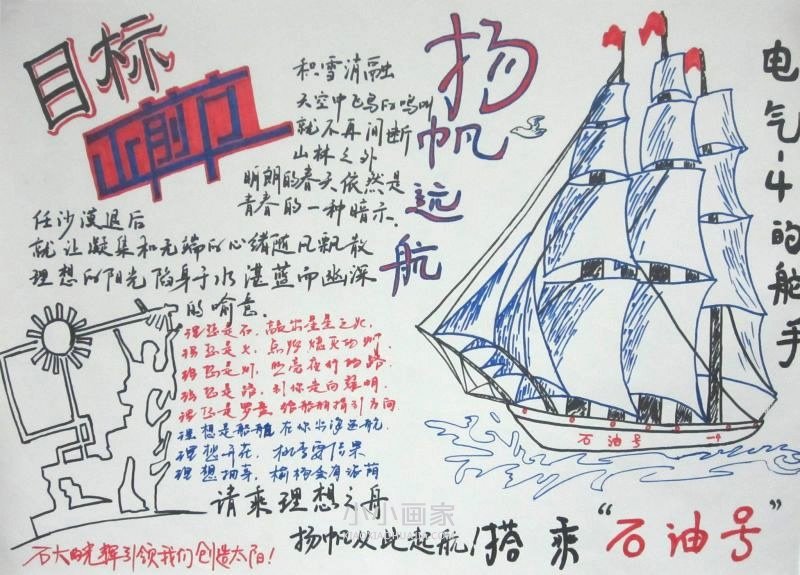 目标
正前方
积雪消融
天空中飞鸟的鸣叫
就不再间断
山林之外
明朗的春天依然是
青春的一种暗示、
任沙漠退后
就让凝集和无端的心绪随风飘散
理想的阳光陷身于水湛蓝而幽深
的喻意.
扬帆远航
电气-4的舵手
理想是石,敲出星星之火,
理想是火,点燃熄灭的灯,
理想是灯,照亮夜行的路
理想是路,引你走向黎明.
理想是罗盘 给船舶指引方向
理想是船舶 在你出海远航.
理想开花,桃李要结果
理想抽芽,榆杨会有浓荫
石油号
请乘理想之舟
扬帆从此起航!搭乘“石油号”
石大的光辉引领我们创造太阳!
小小画家
XIAOXIAOHUAJIA.COM